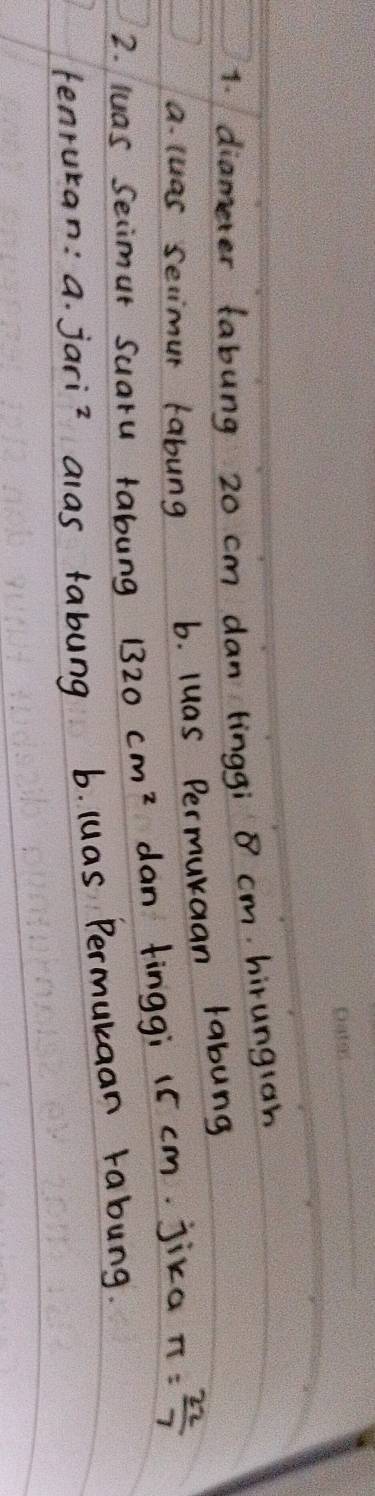 Date:
1. diameter tabung 20 cm dan tinggi 8 cm. hitunglah
a. luas selimut tabung b. luas Permukaan tabung
2. luas selimut suatu tabung 1320 cm² dan tinggi 15 cm. jika π = 22/7
tentukan: a. jari² alas tabung b. luas Permukaan tabung.